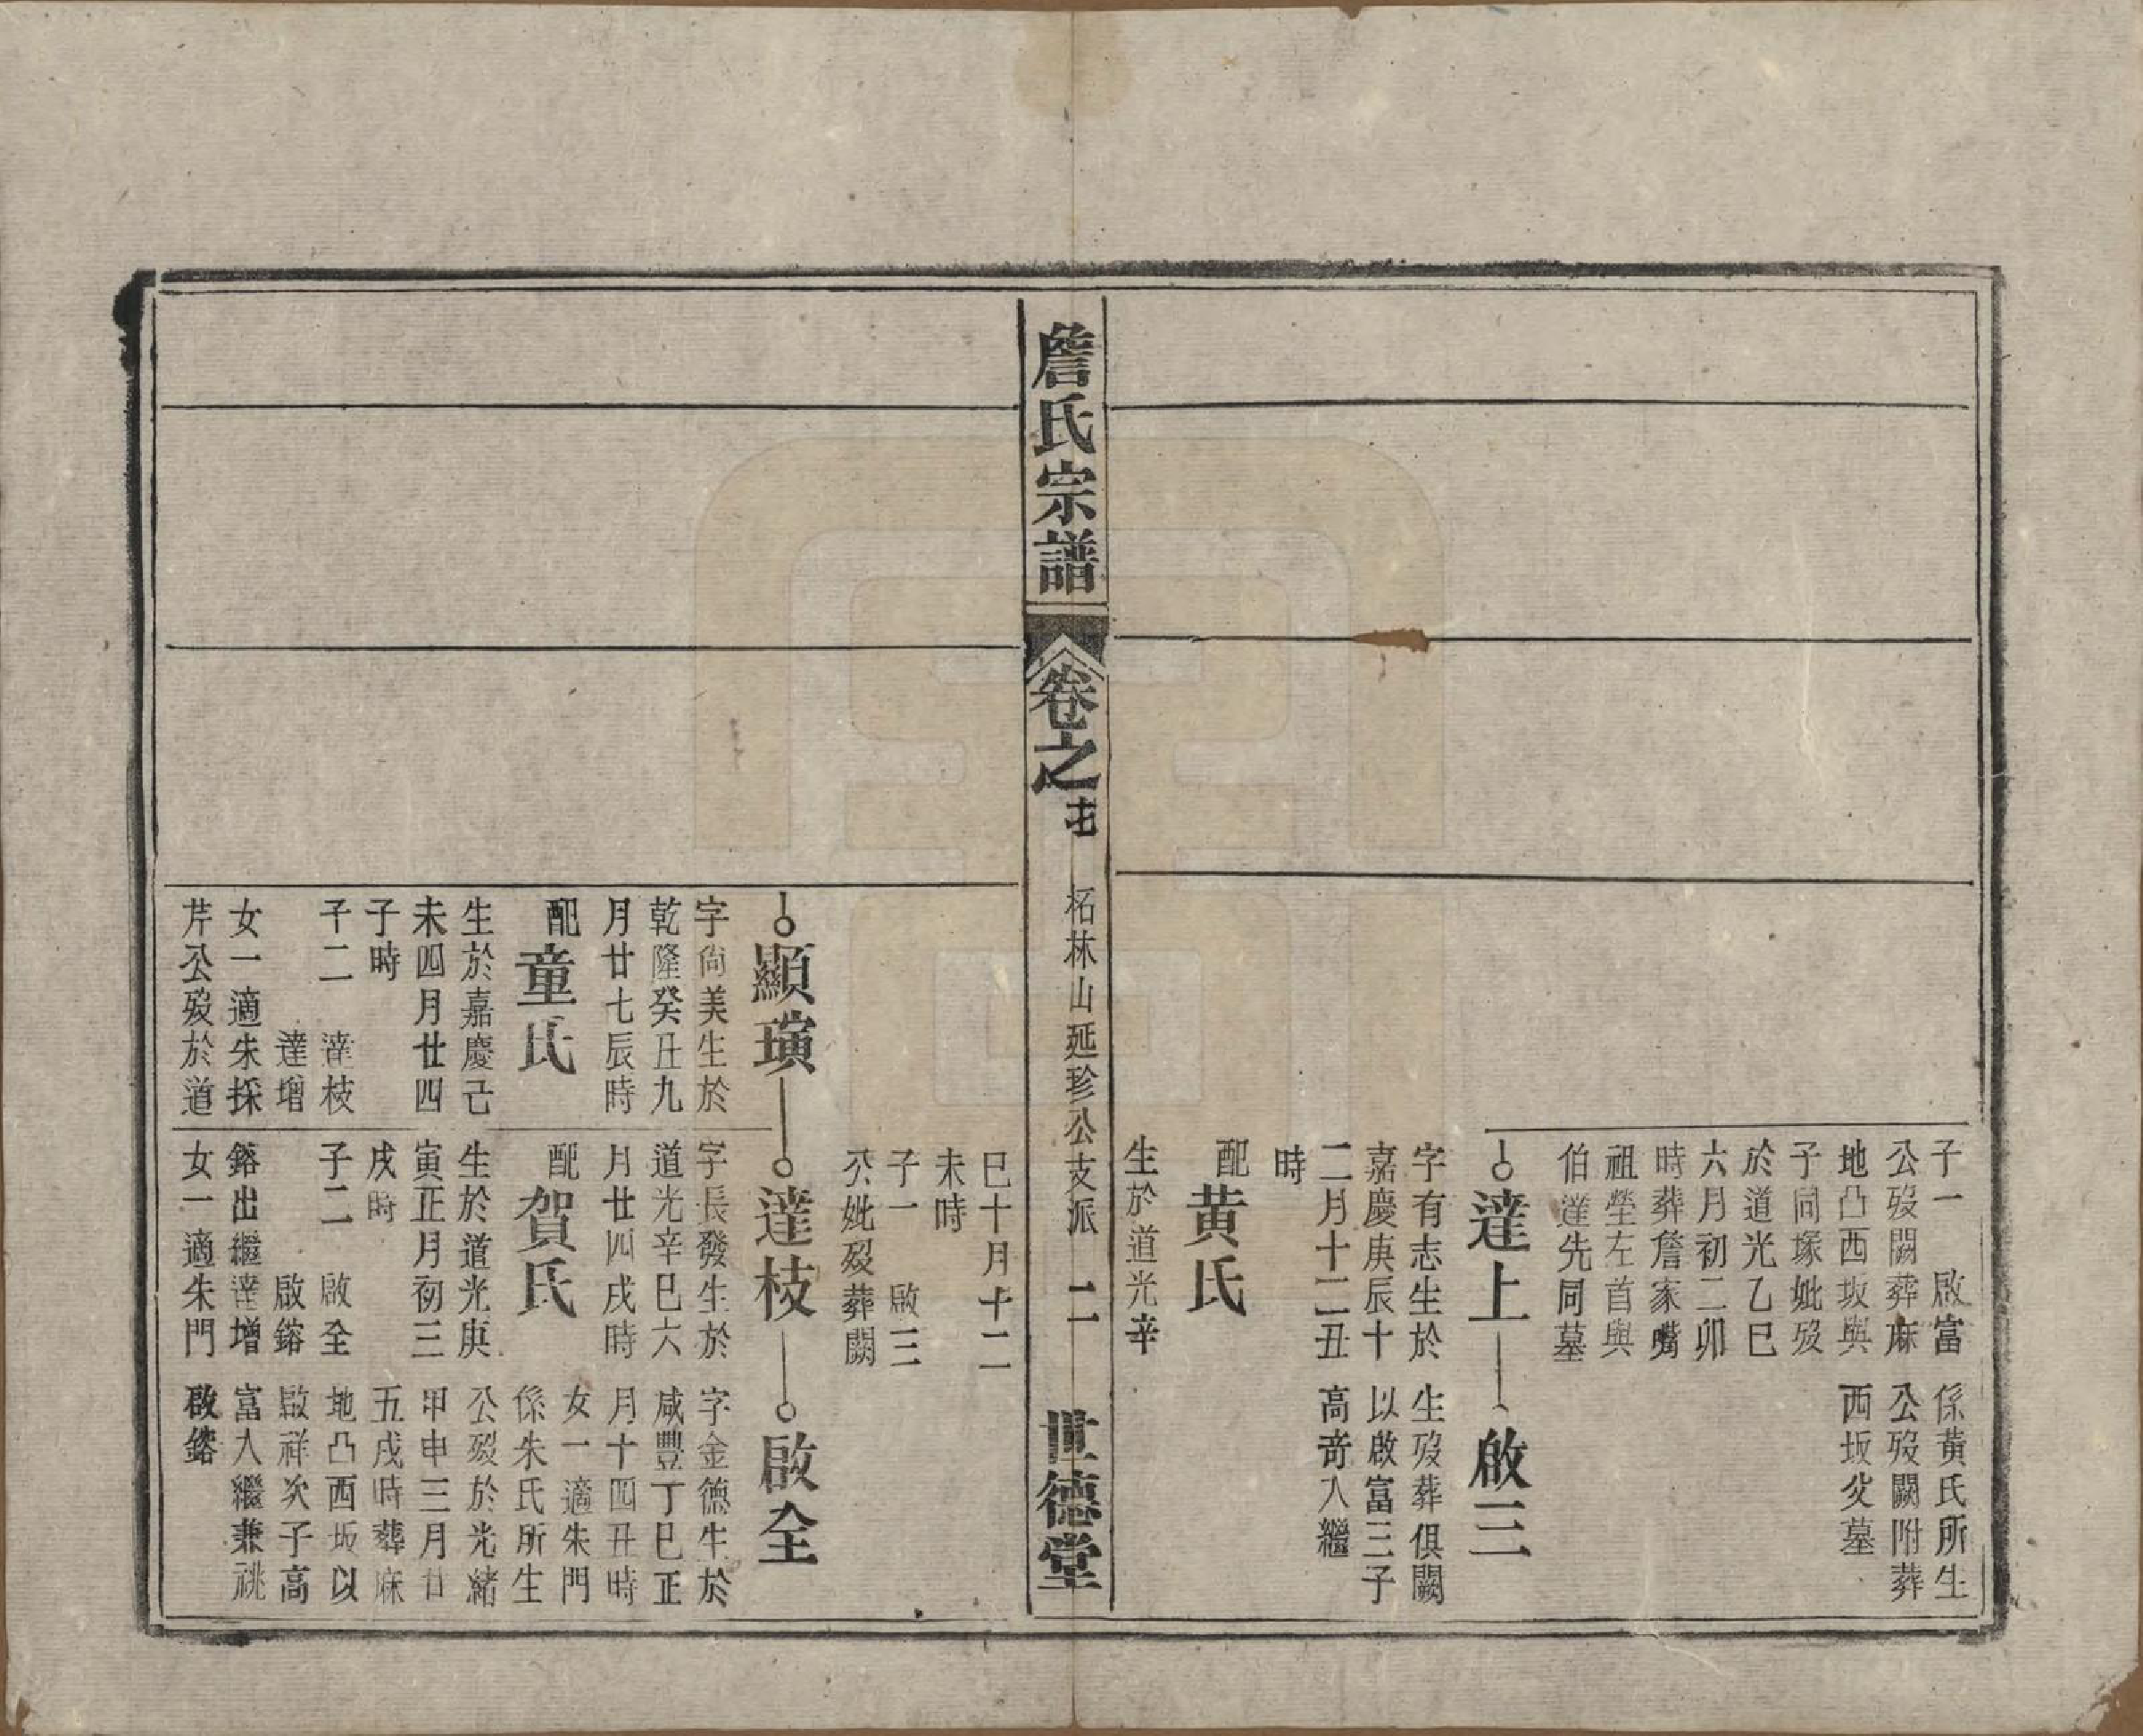 子一　啟富
公歿闕葬麻
地凸西坂與
子同塚妣歿
於道光乙巳
六月初二卯
時葬詹家嘴
祖塋左首與
伯達先同墓
係黃氏所生
公歿闕附葬
西坂父墓
達上
字有志生於
嘉慶庚辰十
二月十二丑
時
配黃氏
生於道光辛
啟三
生歿葬俱闕
以啟富三子
高竒入繼
詹氏宗譜
卷之
柘林山延珍公支派
二
世德堂
巳十月十二
未時
子一　啟三
公妣歿葬闕
顯璜
字尚美生於
乾隆癸丑九
月廿七辰時
配童氏
生於嘉慶己
未四月廿四
子時
子二　達枝
達增
女一適朱採
芹公歿於道
達枝
字長發生於
道光辛巳六
月廿四戌時
配賀氏
生於道光庚
寅正月初三
戌時
子二　啟全
啟鎔
鎔出繼達增
女一適朱門
啟全
字金德生於
咸豐丁巳正
月十四丑時
女一適朱門
係朱氏所生
公歿於光緒
甲申三月廿
五戌時葬麻
地凸西坂以
啟祥次子高
富入繼兼祧
啟鎔